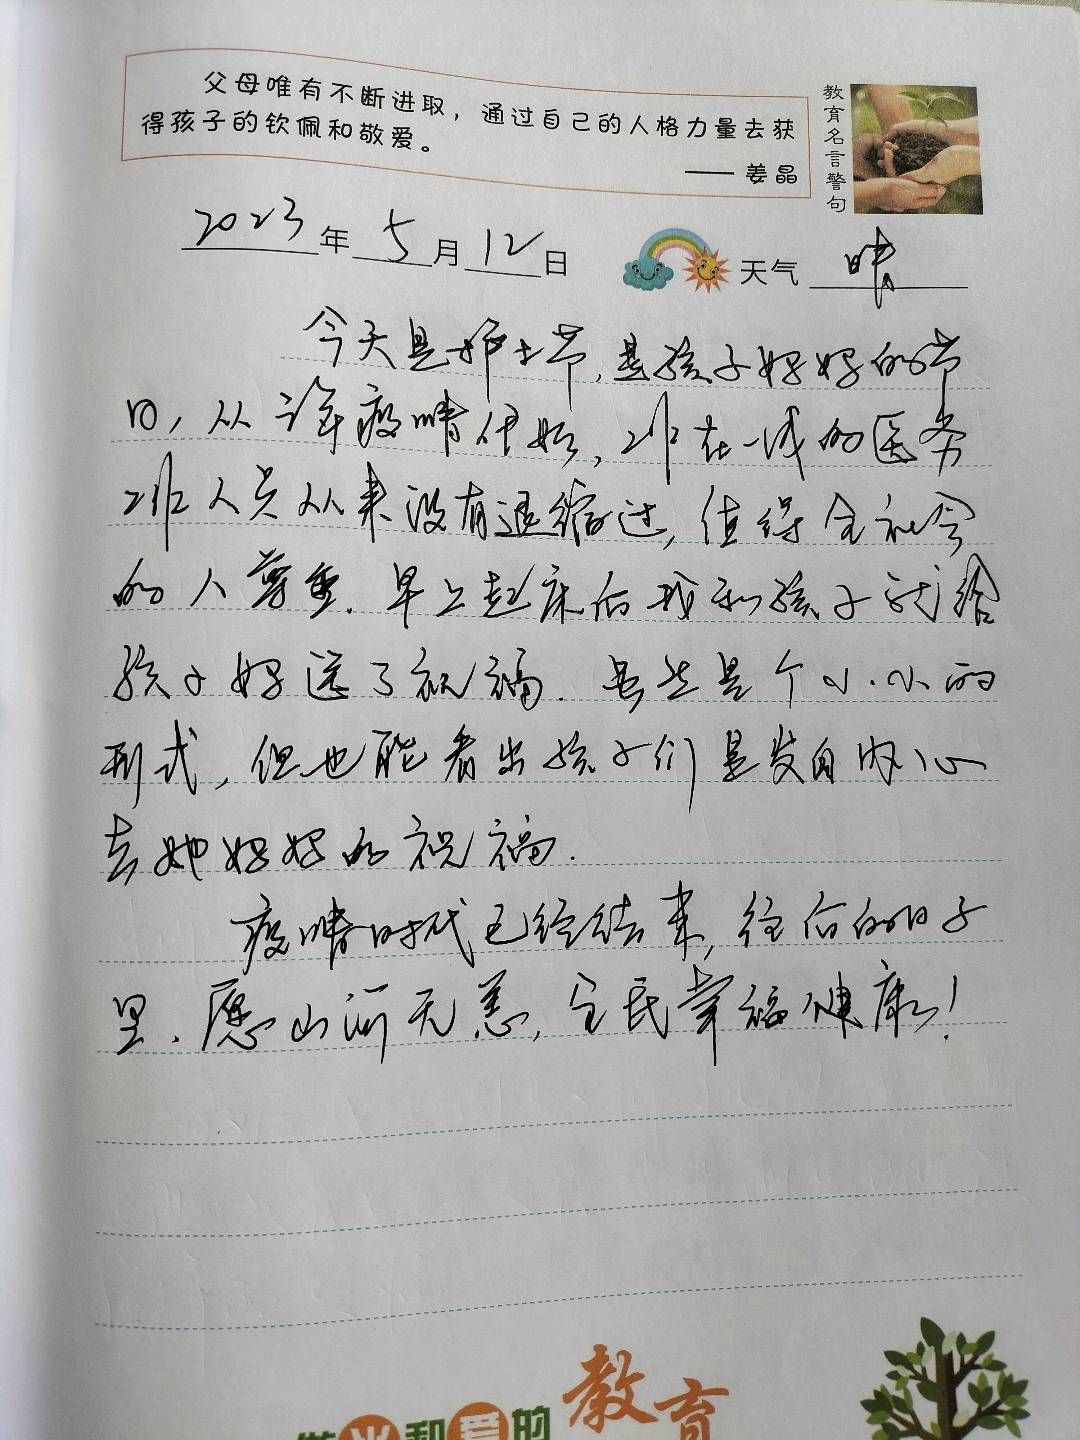 父母唯有不断进取，通过自己的人格力量去获
得孩子的钦佩和敬爱。
—— 姜晶
教育名言警句
2023年5月12日 天气 晴
今天是护士节，是孩子妈妈的节
日，从 疫情伊始，在一线的医务
人员从来没有退缩过，值得全社会
的人尊重．早上起床后我和孩子就给
孩子妈送了祝福．虽然是个小小的
形式，但也能看出孩子们是发自内心
去她妈妈的祝福．
疫情时代已经结束，往后的日子
里、愿山河无恙，全民幸福健康！
做光和爱的教育